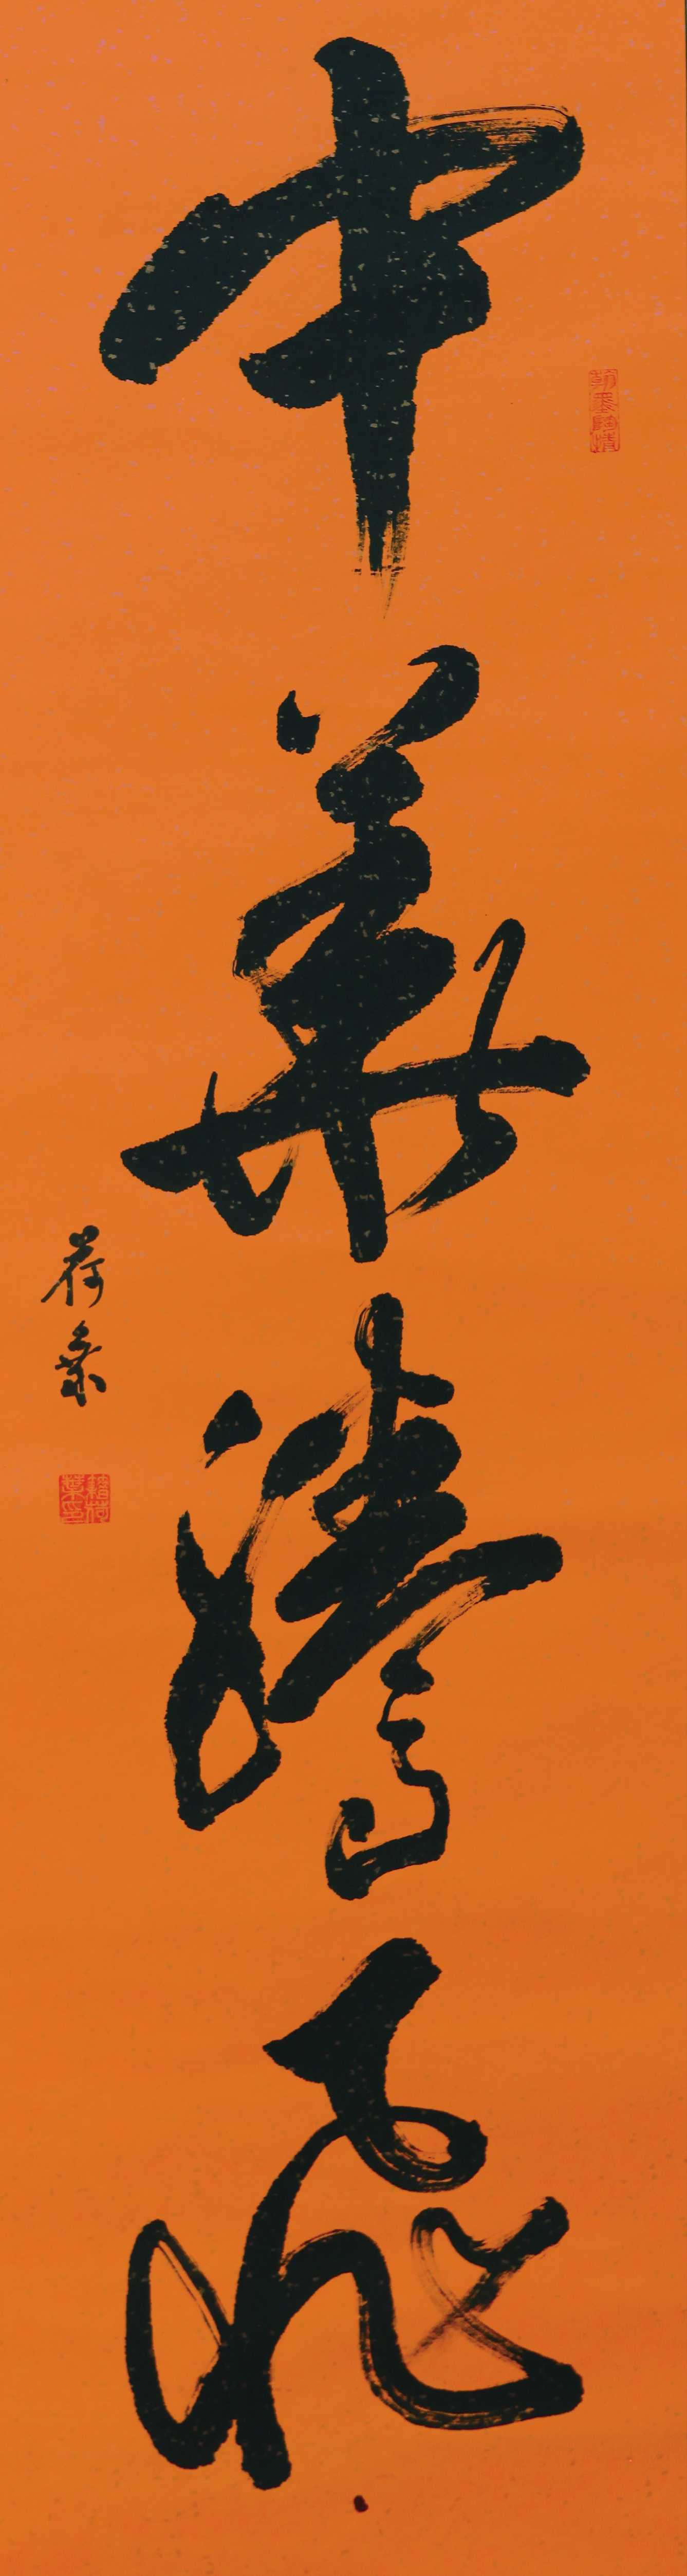 中華騰飛
荷葉